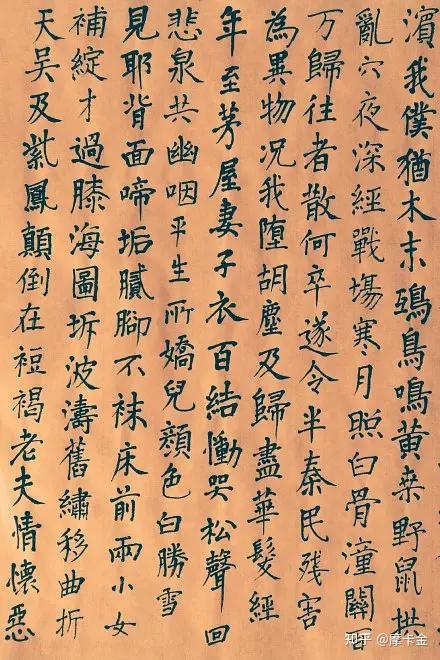 濱我僕猶木末鴟鳥鳴黃桒野鼠拱
亂穴夜深經戰塲寒月照白骨潼關百
万歸往者散何卒遂令半秦民残害
為異物況我墮胡塵及歸盡華髮經
年至茅屋妻子衣百結慟哭松聲回
悲泉共幽咽平生所嬌兒顏色白勝雪
見耶背面啼垢膩腳不袜床前兩小女
補綻才過膝海圖坼波濤舊繡移曲折
天吳及紫鳳顛倒在裋褐老夫情懷惡
知乎 @摩卡金